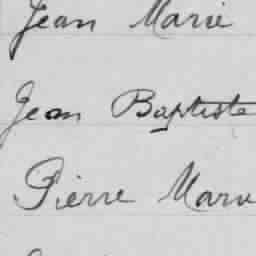 Jean Marie
Jean Baptiste
Pierre Marie